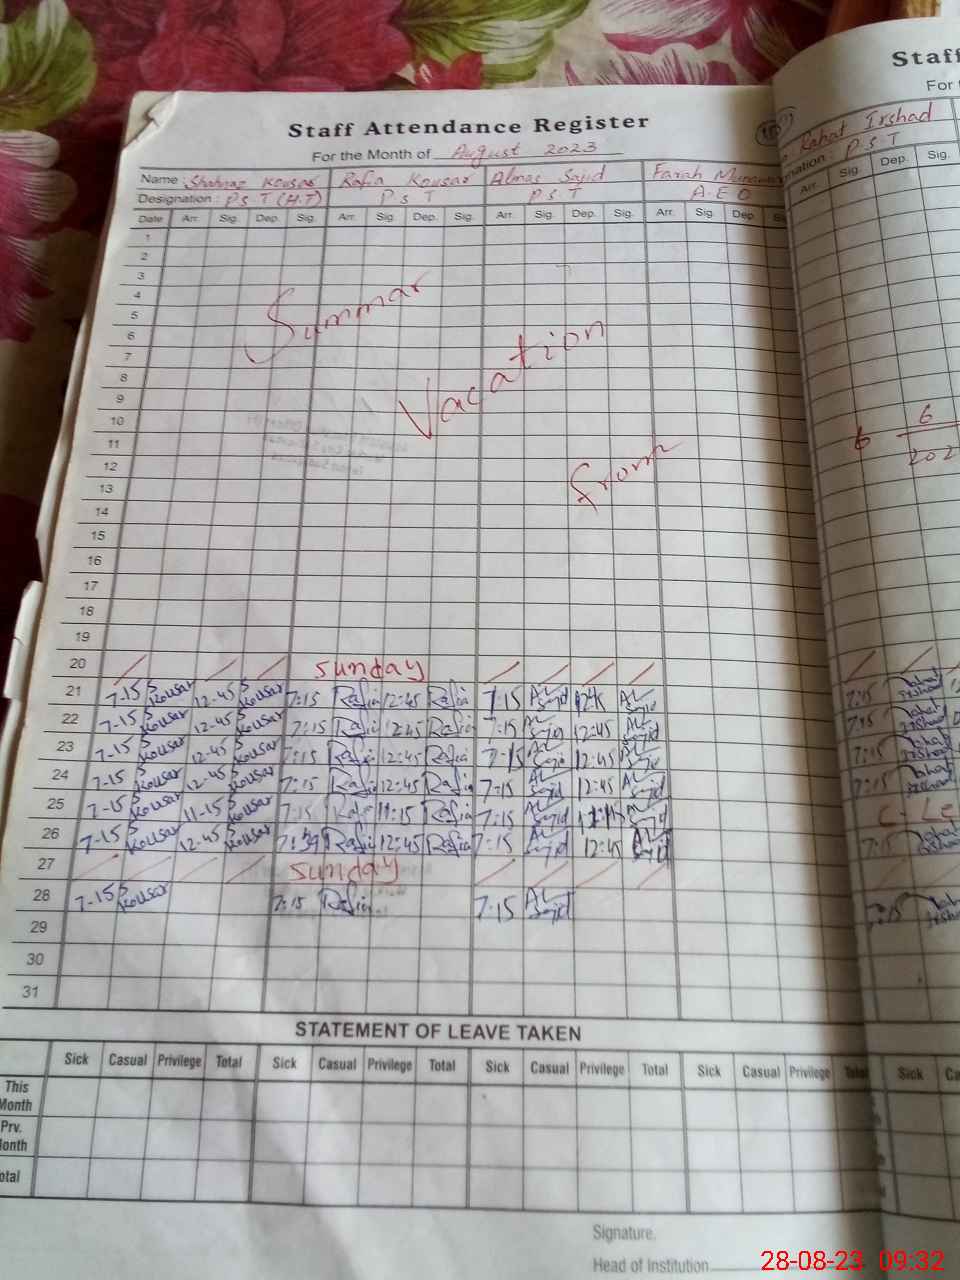 Staff Attendance Register
For the Month of August 2023
Name : Shahnaz Kousar Rafia Kousar Almas Sajid Farah
Designation : P.S.T (H.T) P.S.T P.S.T A.E.O
Date Arr. Sig. Dep. Sig. Arr. Sig. Dep. Sig. Arr. Sig. Dep. Sig. Arr. Sig. Dep.
1
2
3
4
Summar
5
6
7
Vacation
8
9
10
11
12
from
13
14
15
16
17
18
19
20 Sunday
21 7-15 S Kousar 12-45 S Kousar 7:15 Rafia 12:45 Rafia 7:15 AL Sajid AL Sajid
22 7-15 S Kousar 12-45 S Kousar 7:15 Rafia 12:45 Rafia 7:15 AL Sajid 12:45 AL Sajid
23 7-15 S Kousar 12-45 S Kousar 7:15 Rafia 12:45 Rafia 7:15 AL Sajid 12:45 AL Sajid
24 7-15 S Kousar 12-45 S Kousar 7:15 Rafia 12:45 Rafia 7:15 AL Sajid 12:45 AL Sajid
25 7-15 S Kousar 11-15 S Kousar 7:15 Rafia 11:15 Rafia 7:15 AL Sajid AL Sajid
26 7-15 S Kousar 12-45 S Kousar Rafia 12:45 Rafia 7:15 AL Sajid 12:45 AL Sajid
27 Sunday
28 7-15 S Kousar 7:15 Rafia 7:15 AL Sajid
29
30
31
STATEMENT OF LEAVE TAKEN
Sick Casual Privilege Total Sick Casual Privilege Total Sick Casual Privilege Total Sick Casual Privilege Total
This Month
Prv.
Signature.
Head of Institution
Staff
For
Rahat Irshad
P.S.T
Arr. Sig. Dep. Sig.
6 6
202
7:15 Rahat Irshad
7:15 Rahat Irshad
7:15 Rahat Irshad
7:15 Rahat Irshad
C-Le
7:15 Rahat Irshad
7:15 Rahat Irshad
Sick Ca
28-08-23 09:32